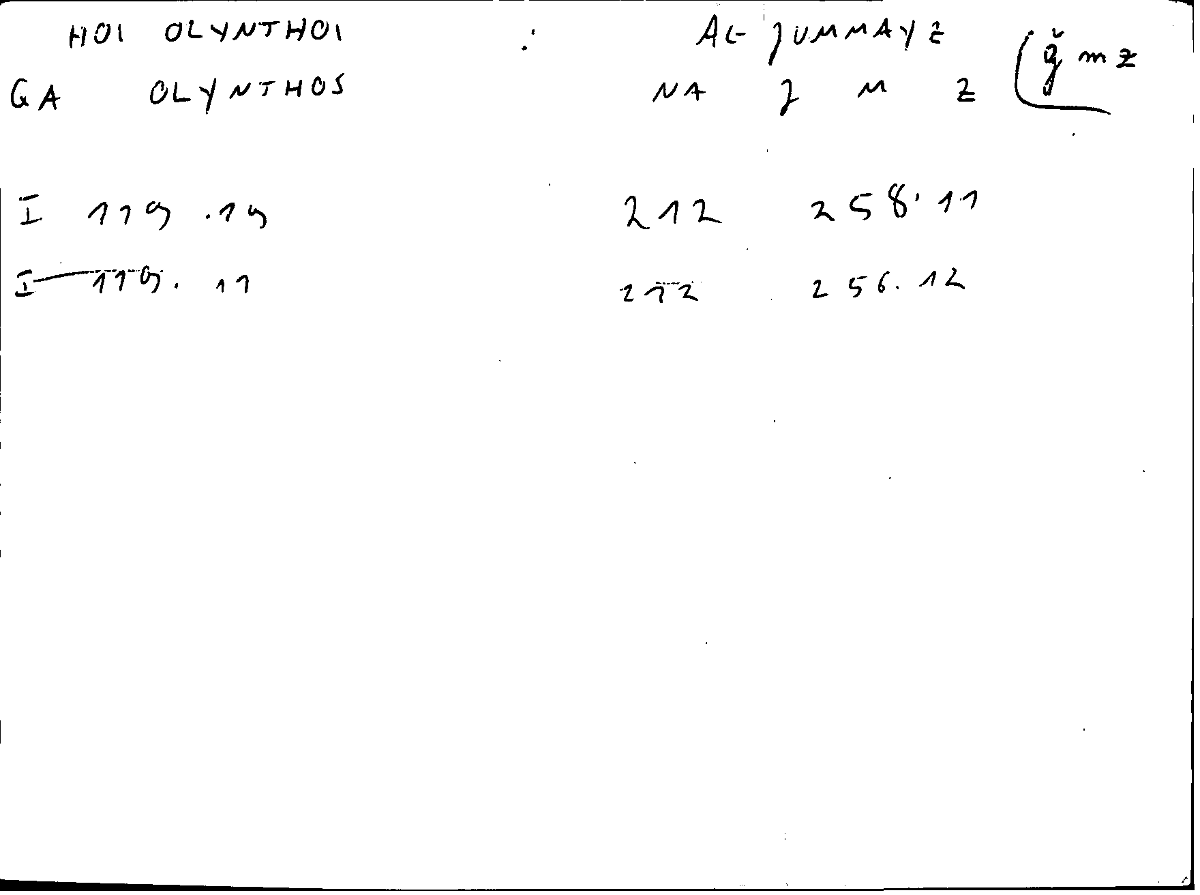 HOI OLYNTHOI : AL JUMMAYZ
GA OLYNTHOS NA J M Z (ǧmz
I 119.19 212 258.11
I 119.11 212 256.12